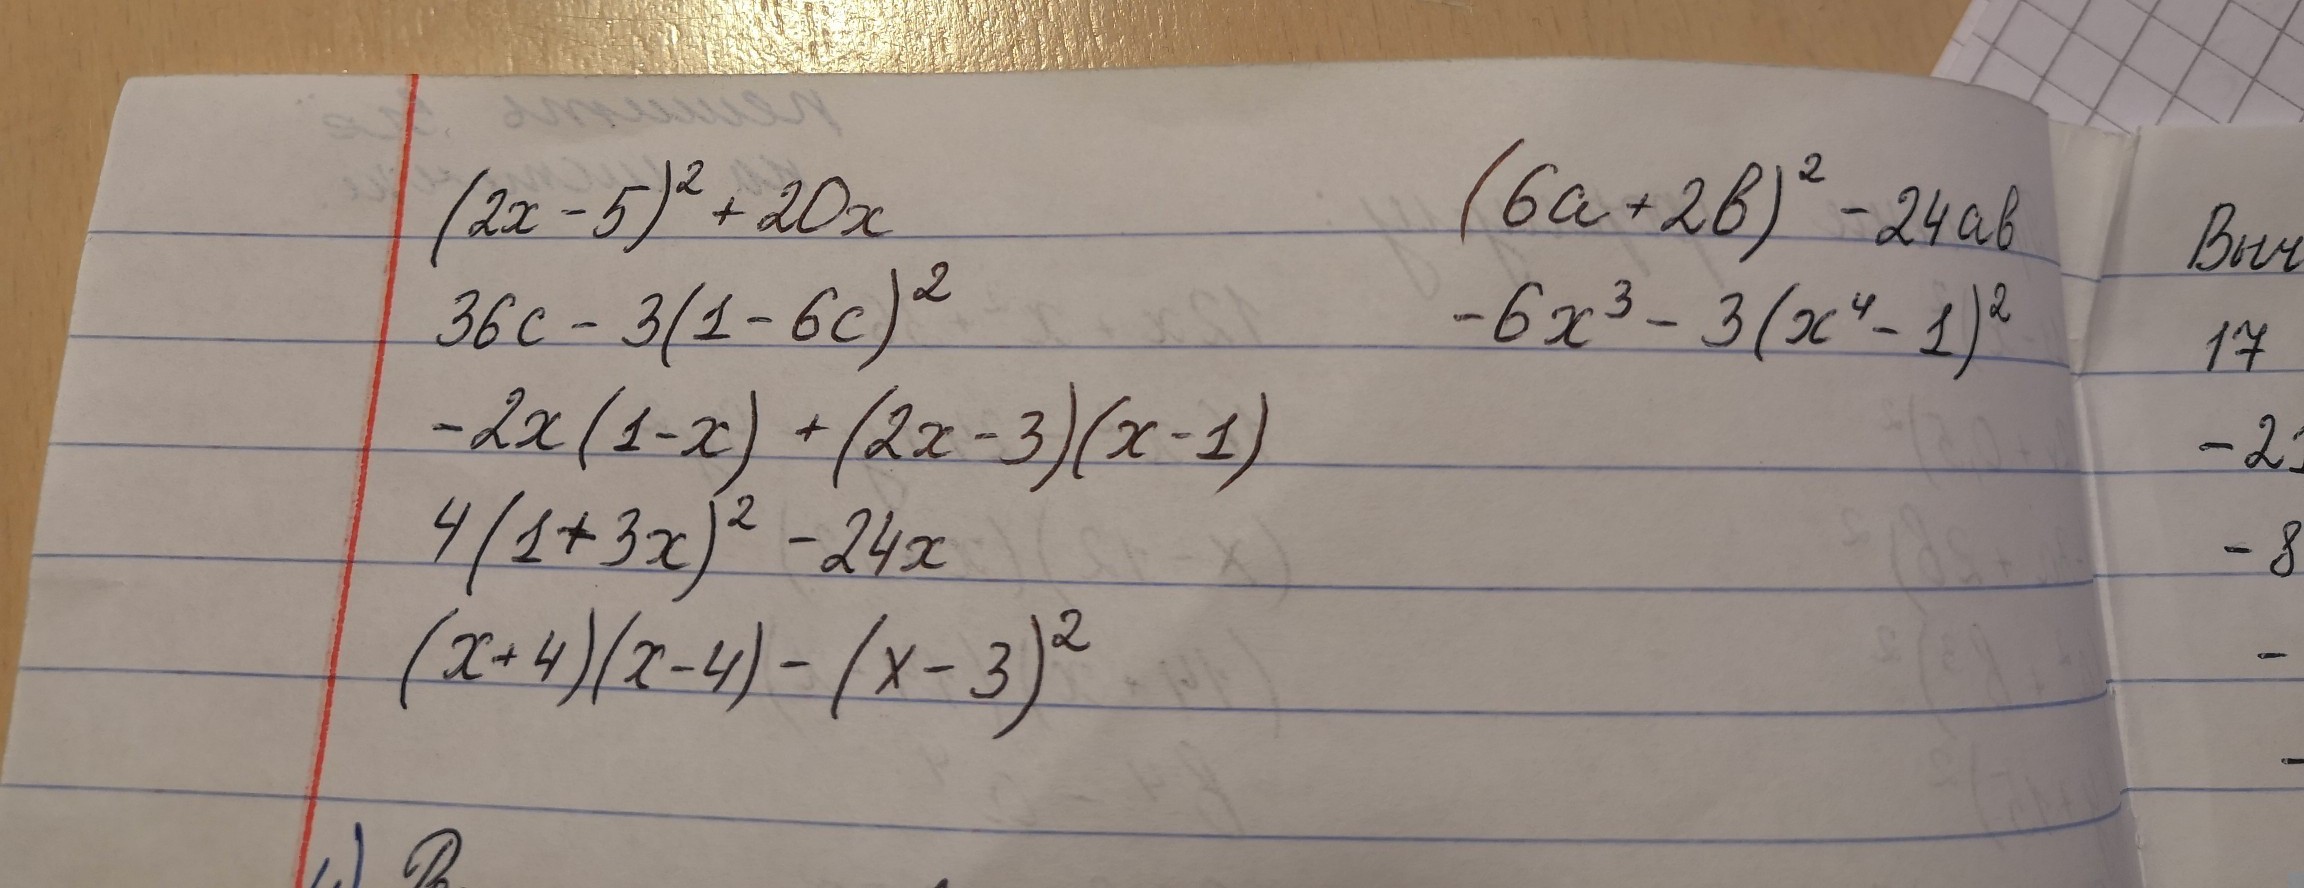 (2x - 5)² + 20x
36c - 3(1 - 6c)²
-2x(1-x) + (2x - 3)(x - 1)
4(1 + 3x)² - 24x
(x+4)(x-4) - (x - 3)²
(6a + 2b)² - 24ab
-6x³ - 3(x⁴ - 1)²
17